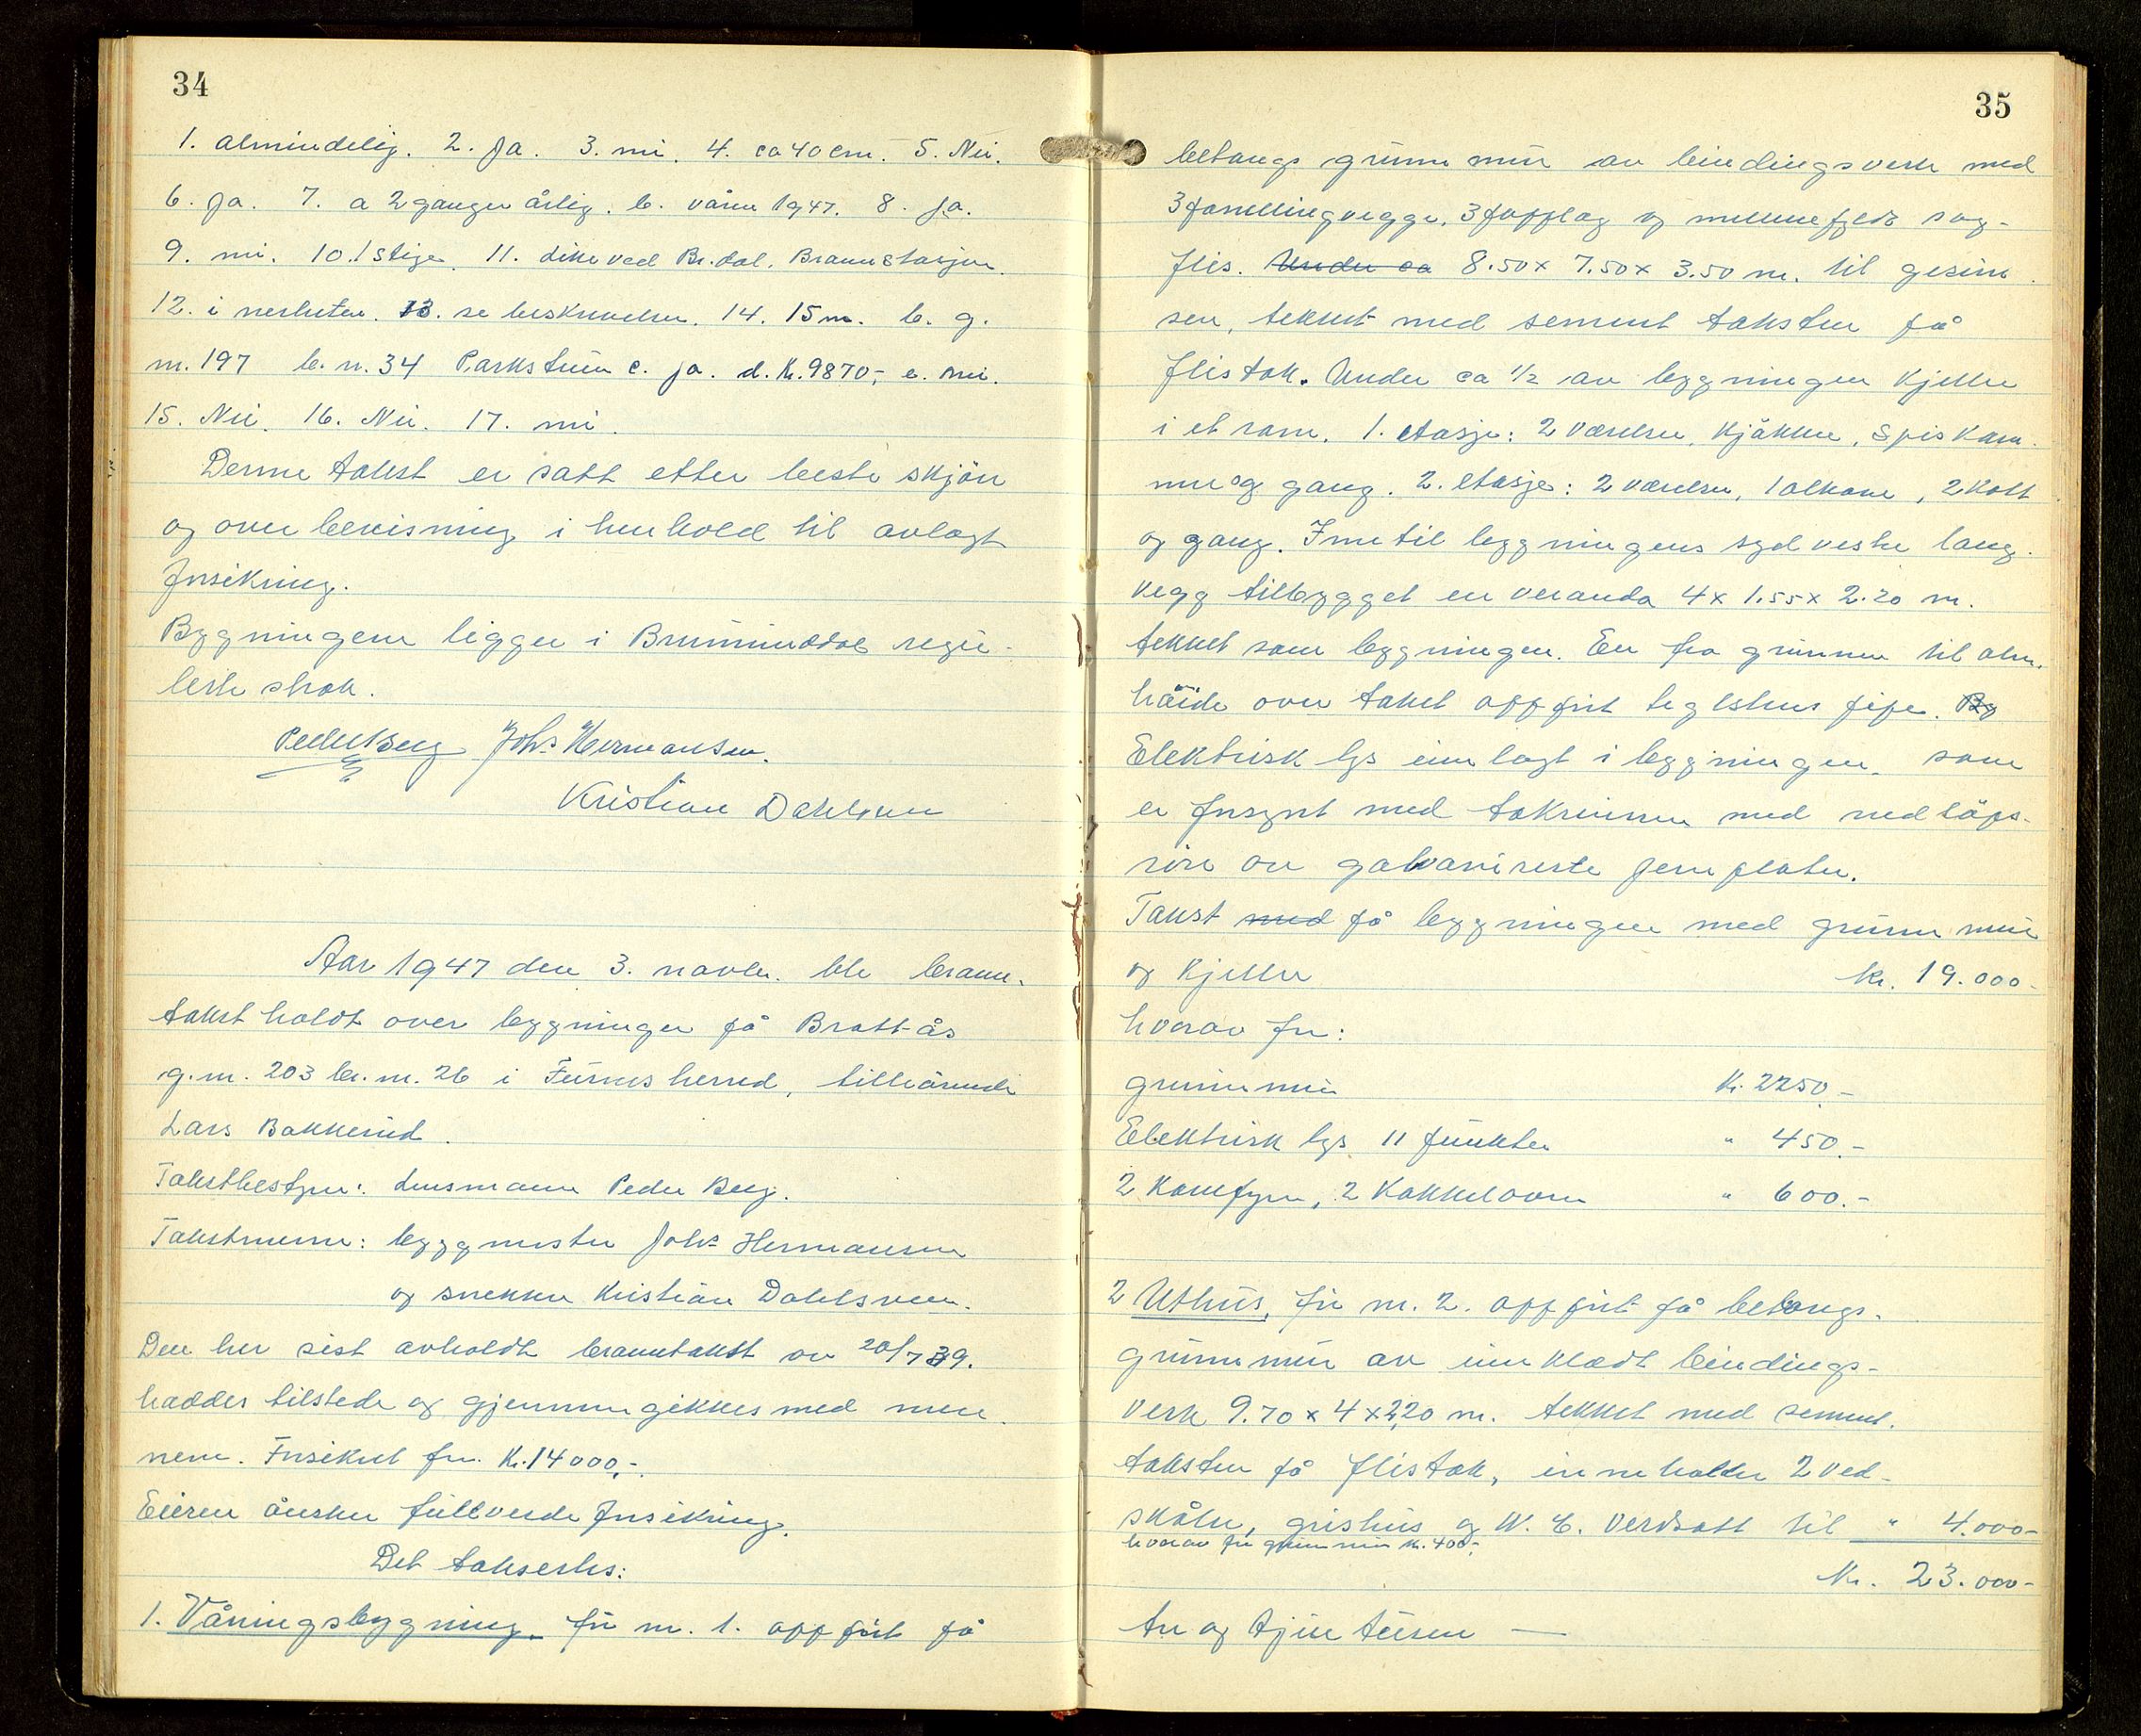 34
1. almindelig. 2. Ja. 3. nei. 4. ca 40 cm. 5. Nei.
6. ja. 7. a 2 ganger årlig. b. våren 1947. 8. Ja.
9. nei. 10. 1 Stige. 11. dike ved Br.dal. Brannstasjon.
12. i nerheten. 13. se beskrivelsen. 14. 15 m. b. g.
n. 197 b. n. 34 Parkstuen c. ja. d. Kr. 9870,- e. nei.
15. Nei. 16. Nei. 17. nei.
Denne takst er satt etter beste skjön
og overbevisning i henhold til avlagt
forsikring.
Bygningen ligger i Brumunddal regu-
lerte strøk.
Peder Berg Johs Hermansen.
Kristian Dahlsveen
Aar 1947 den 3. novbr. ble brann-
takst holdt over bygninger på Bratt-ås
g.n. 203 br.n. 26 i Furnes herred, tilhörende
Lars Bakkerud.
Takstbestyrer: Lensmann Peder Berg.
Takstmenn: byggmester Johs Hermansen
og snekker Kristian Dahlsveen.
Den her sist avholdt branntakst av 20/7 39.
haddes tilstede og gjennemgikkes med men-
nene. Forsikret for Kr. 14000,-.
Eieren önsker fullverdeforsikring.
Det takseres:
1. Våningsbygning. för n. 1. oppfört på
35
betongs grunnmur av bindingsverk med
3 panellingvegge, 3 papplag og mellemfyldt sag-
flis. Under ca 8.50 x 7.50 x 3.50 m. til gesim
sen, tekket med sement taksten på
flistak. Under ca 1/2 av bygningen kjeller
i et rom. 1. etasje: 2 værelser, kjökken, Spiskam-
mer og gang. 2. etasje: 2 værelser, 1 alkove, 2 kott
og gang. Inn til bygningens sydvestre lang-
vegg tilbygget en veranda 4 x 1.55 x 2.20 m.
tekket som bygningen. En fra grunnen til alm.
höide over taket oppfört teglstens pipe. By
Elektrisk lys innlagt i bygningen. som
er forsynt med takrenner med nedlöps-
rör av galvaniserte jernplater.
Takst med på bygningen med grunnmur
og kjeller kr. 19.000-
hvorav for:
grunnmur Kr. 2250.-
Elektrisk lys 11 punkter " 450.-
2 Komfyrer, 2 Kakkelovner " 600.-
2 Uthus, för n. 2. oppfört på betongs-
grunnmur av innkledt bindings-
verk 9.70 x 4 x 2,20 m. tekket med sement-
taksten på flistak, inneholder 2 ved-
skåler, grishus og W. C. Verdsatt til " 4.000-
hvorav for grunnmur kr. 400-,
Kr. 23.000-
Tre og tjue tusen —